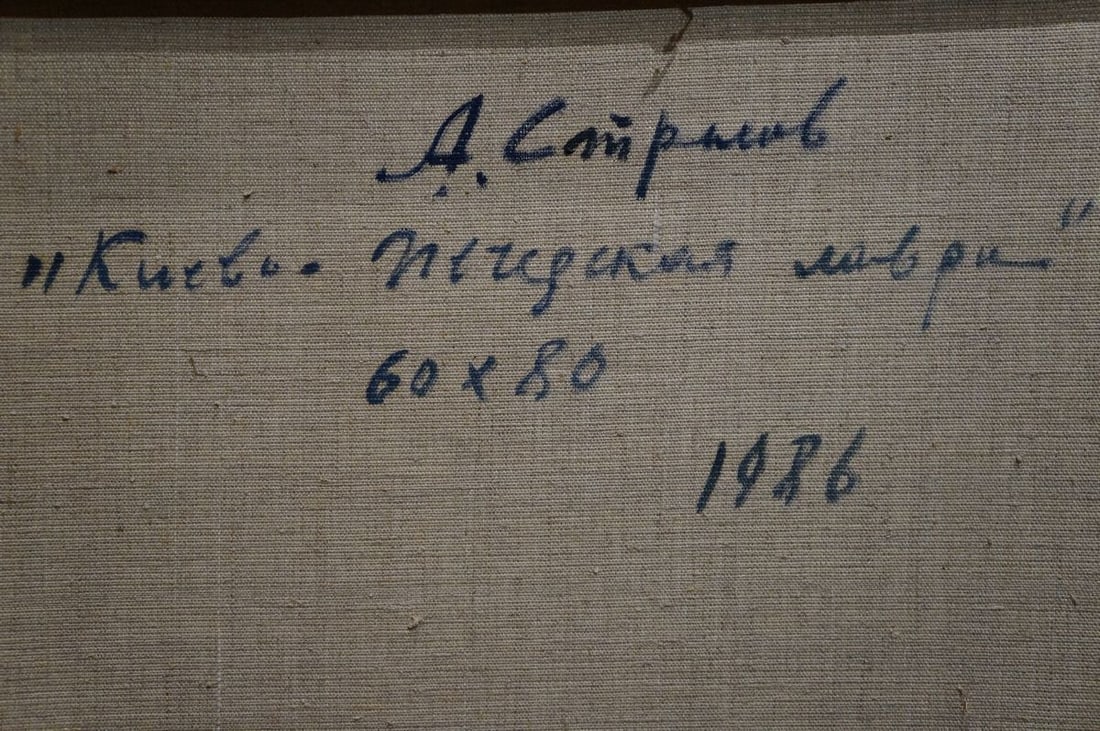 А.
"Киево-Печерская лавра"
60 x 80
1986